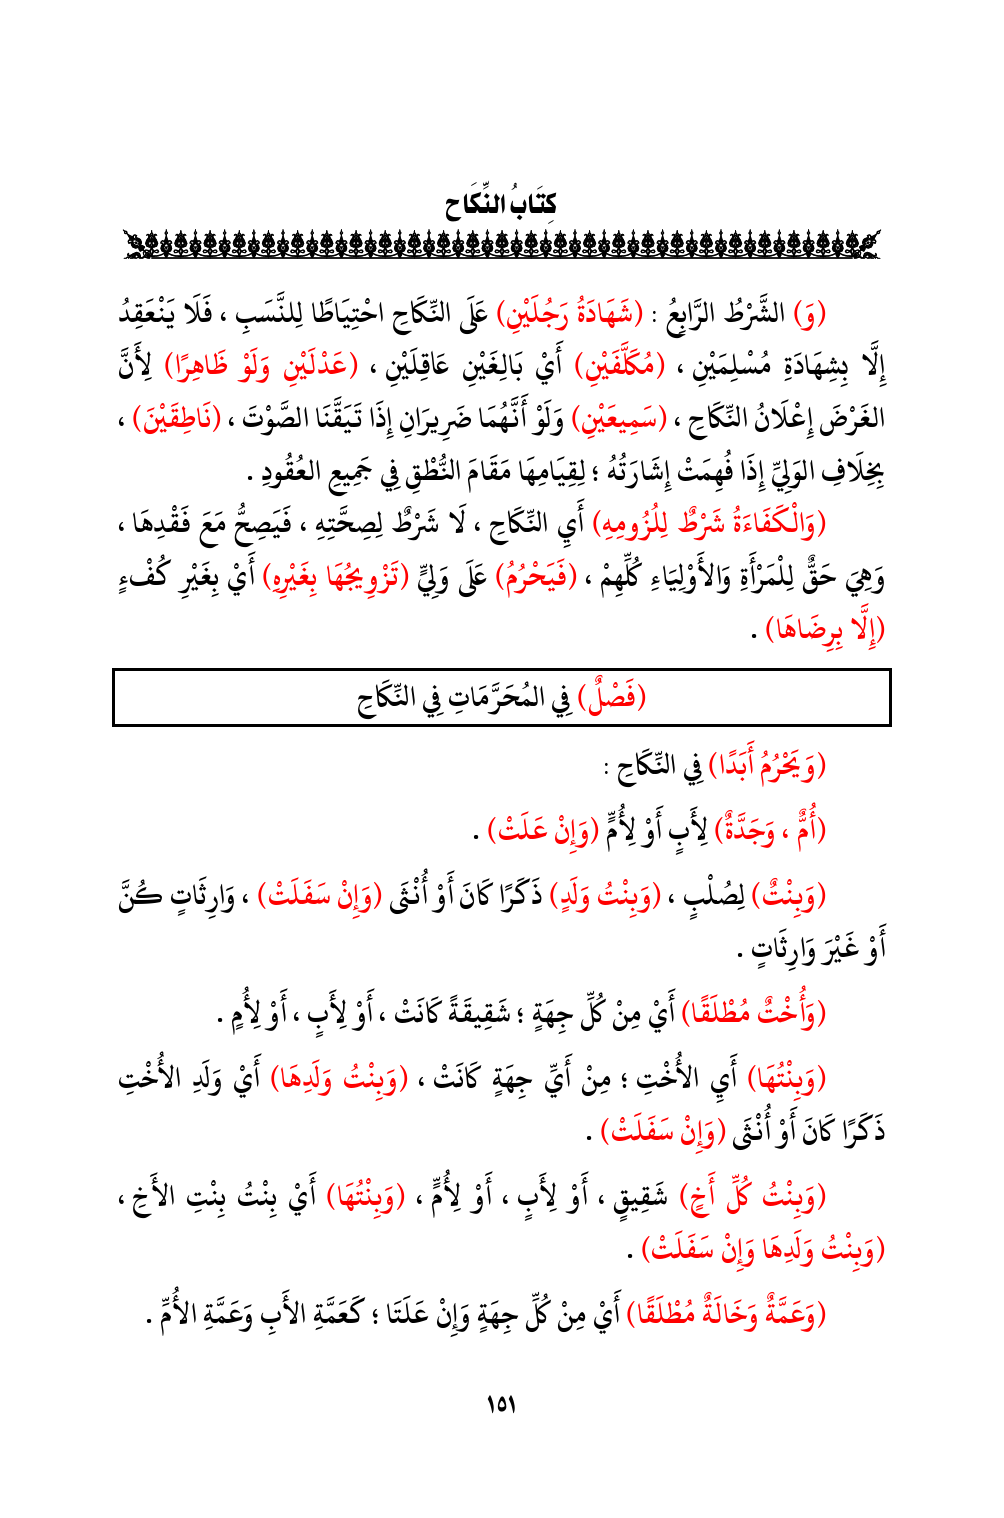 كِتَابُ النِّكَاح
(وَ) الشَّرْطُ الرَّابِعُ : (شَهَادَةُ رَجُلَيْنِ) عَلَى النِّكَاحِ احْتِيَاطًا لِلنَّسَبِ ، فَلَا يَنْعَقِدُ
إِلَّا بِشِهَادَةِ مُسْلِمَيْنِ ، (مُكَلَّفَيْنِ) أَيْ بَالِغَيْنِ عَاقِلَيْنِ ، (عَدْلَيْنِ وَلَوْ ظَاهِرًا) لِأَنَّ
الغَرْضَ إِعْلَانُ النِّكَاحِ ، (سَمِيعَيْنِ) وَلَوْ أَنَّهُمَا ضَرِيرَانِ إِذَا تَيَقَّنَا الصَّوْتَ ، (نَاطِقَيْنَ) ،
بِخِلَافِ الوَلِيِّ إِذَا فُهِمَتْ إِشَارَتُهُ ؛ لِقِيَامِهَا مَقَامَ النُّطْقِ فِي جَمِيعِ العُقُودِ .
(وَالْكَفَاءَةُ شَرْطٌ لِلُزُومِهِ) أَيِ النِّكَاحِ ، لَا شَرْطٌ لِصِحَّتِهِ ، فَيَصِحُّ مَعَ فَقْدِهَا ،
وَهِيَ حَقٌّ لِلْمَرْأَةِ وَالأَوْلِيَاءِ كُلِّهِمْ ، (فَيَحْرُمُ) عَلَى وَلِيٍّ (تَزْوِيجُهَا بِغَيْرِهِ) أَيْ بِغَيْرِ كُفْءٍ
(إِلَّا بِرِضَاهَا) .
(فَصْلٌ) فِي المُحَرَّمَاتِ فِي النِّكَاحِ
(وَيَحْرُمُ أَبَدًا) فِي النِّكَاحِ :
(أُمٌّ ، وَجَدَّةٌ) لِأَبٍ أَوْ لِأُمٍّ (وَإِنْ عَلَتْ) .
(وَبِنْتٌ) لِصُلْبٍ ، (وَبِنْتُ وَلَدٍ) ذَكَرًا كَانَ أَوْ أُنْثَى (وَإِنْ سَفَلَتْ) ، وَارِثَاتٍ كُنَّ
أَوْ غَيْرَ وَارِثَاتٍ .
(وَأُخْتٌ مُطْلَقًا) أَيْ مِنْ كُلِّ جِهَةٍ ؛ شَقِيقَةً كَانَتْ ، أَوْ لِأَبٍ ، أَوْ لِأُمٍ .
(وَبِنْتُهَا) أَيِ الأُخْتِ ؛ مِنْ أَيِّ جِهَةٍ كَانَتْ ، (وَبِنْتُ وَلَدِهَا) أَيْ وَلَدِ الأُخْتِ
ذَكَرًا كَانَ أَوْ أُنْثَى (وَإِنْ سَفَلَتْ) .
(وَبِنْتُ كُلِّ أَخٍ) شَقِيقٍ ، أَوْ لِأَبٍ ، أَوْ لِأُمٍّ ، (وَبِنْتُهَا) أَيْ بِنْتُ بِنْتِ الأَخِ ،
(وَبِنْتُ وَلَدِهَا وَإِنْ سَفَلَتْ) .
(وَعَمَّةٌ وَخَالَةٌ مُطْلَقًا) أَيْ مِنْ كُلِّ جِهَةٍ وَإِنْ عَلَتَا ؛ كَعَمَّةِ الأَبِ وَعَمَّةِ الأُمِّ .
١٥١